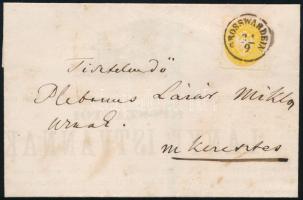 GROSSWARDEIN
9
Tisztelendő
Plebanus Lázár Miklos
urnak.
m Keresztes